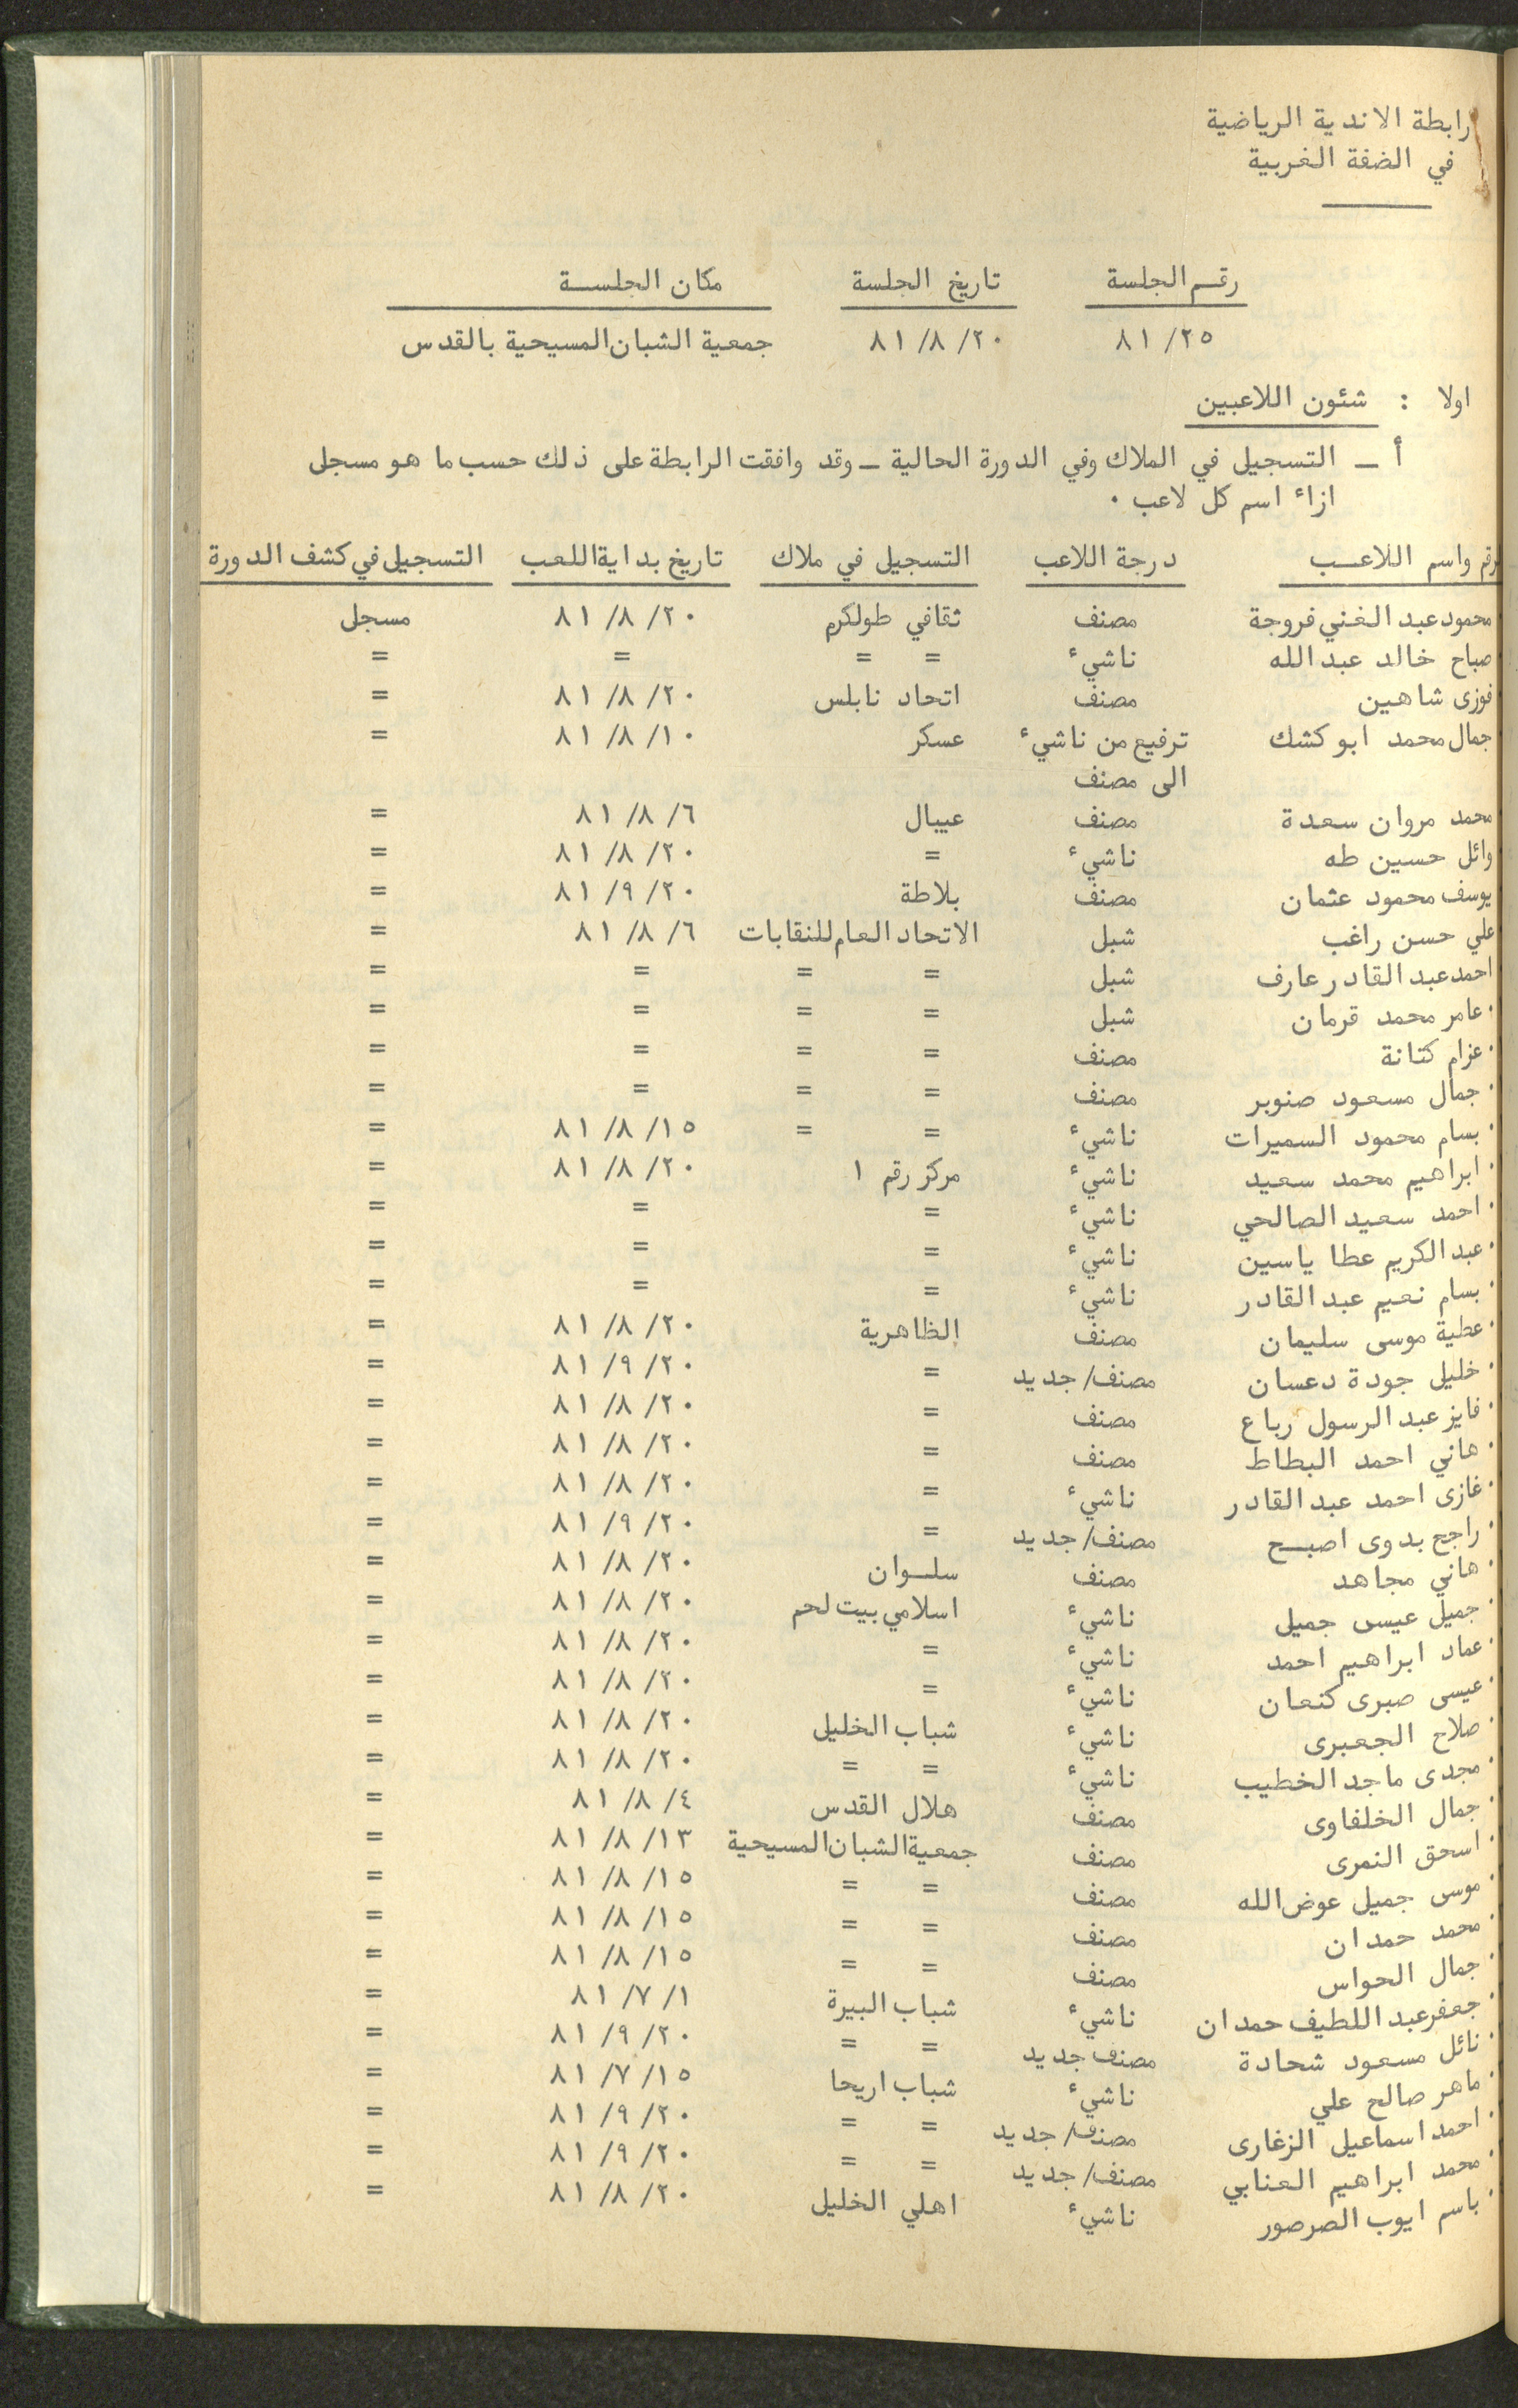 رابطة الاندية الرياضية
في الضفة الغربية
رقم الجلسة تاريخ الجلسة مكان الجلسة
٨١/٢٥ ٨١/٨/٢٠ جمعية الشبان المسيحية بالقدس
اولا : شئون اللاعبين
أ ـ التسجيل في الملاك وفي الدورة الحالية ـ وقد وافقت الرابطة على ذلك حسب ما هو مسجل
ازاء اسم كل لاعب .
رقم واسم اللاعب درجة اللاعب التسجيل في ملاك تاريخ بداية اللعب التسجيل في كشف الدورة
محمود عبد الغني فروجة مصنف ثقافي طولكرم ٨١/٨/٢٠ مسجل
صباح خالد عبد الله ناشيء = = = =
فوزى شاهين مصنف اتحاد نابلس ٨١/٨/٢٠ =
جمال محمد ابو كشك ترفيع من ناشيء عسكر ٨١/٨/١٠ =
الى مصنف
محمد مروان سعدة مصنف عيبال ٨١/٨/٦ =
وائل حسين طه ناشيء = ٨١/٨/٢٠ =
يوسف محمود عثمان مصنف بلاطة ٨١/٩/٢٠ =
علي حسن راغب شبل الاتحاد العام للنقابات ٨١/٨/٦ =
احمد عبد القادر عارف شبل = = = =
. عامر محمد قرمان شبل = = = =
. عزام كتانة مصنف = = = =
. جمال مسعود صنوبر مصنف = = = =
. بسام محمود السميرات ناشيء = = ٨١/٨/١٥ =
. ابراهيم محمد سعيد ناشيء مركز رقم ١ ٨١/٨/٢٠ =
. احمد سعيد الصالحي ناشيء = = =
. عبد الكريم عطا ياسين ناشيء = = =
. بسام نعيم عبد القادر ناشيء = = =
. عطية موسى سليمان مصنف الظاهرية ٨١/٨/٢٠ =
. خليل جودة دعسان مصنف/جديد = ٨١/٩/٢٠ =
. فايز عبد الرسول رباع مصنف = ٨١/٨/٢٠ =
. هاني احمد البطاط مصنف = ٨١/٨/٢٠ =
. غازى احمد عبد القادر ناشيء = ٨١/٨/٢٠ =
. راجح بدوى اصبح مصنف/جديد = ٨١/٩/٢٠ =
. هاني مجاهد مصنف سلوان ٨١/٨/٢٠ =
. جميل عيسى جميل ناشيء اسلامي بيت لحم ٨١/٨/٢٠ =
. عماد ابراهيم احمد ناشيء = ٨١/٨/٢٠ =
. عيسى صبرى كنعان ناشيء = ٨١/٨/٢٠ =
. صلاح الجعبرى ناشيء شباب الخليل ٨١/٨/٢٠ =
. مجدى ماجد الخطيب ناشيء = = ٨١/٨/٢٠ =
. جمال الخلفاوى مصنف هلال القدس ٨١/٨/٤ =
. اسحق النمرى مصنف جمعية الشبان المسيحية ٨١/٨/١٣ =
. موسى جميل عوض الله مصنف = = ٨١/٨/١٥ =
. محمد حمدان مصنف = = ٨١/٨/١٥ =
. جمال الحواس مصنف = = ٨١/٨/١٥ =
. جعفر عبد اللطيف حمدان ناشيء شباب البيرة ٨١/٧/١ =
. نائل مسعود شحادة مصنف جديد = = ٨١/٩/٢٠ =
. ماهر صالح علي ناشيء شباب اريحا ٨١/٧/١٥ =
. احمد اسماعيل الزغارى مصنف/جديد = = ٨١/٩/٢٠ =
. محمد ابراهيم العنابي مصنف/جديد = = ٨١/٩/٢٠ =
. باسم ايوب الصرصور ناشيء اهلي الخليل ٨١/٨/٢٠ =